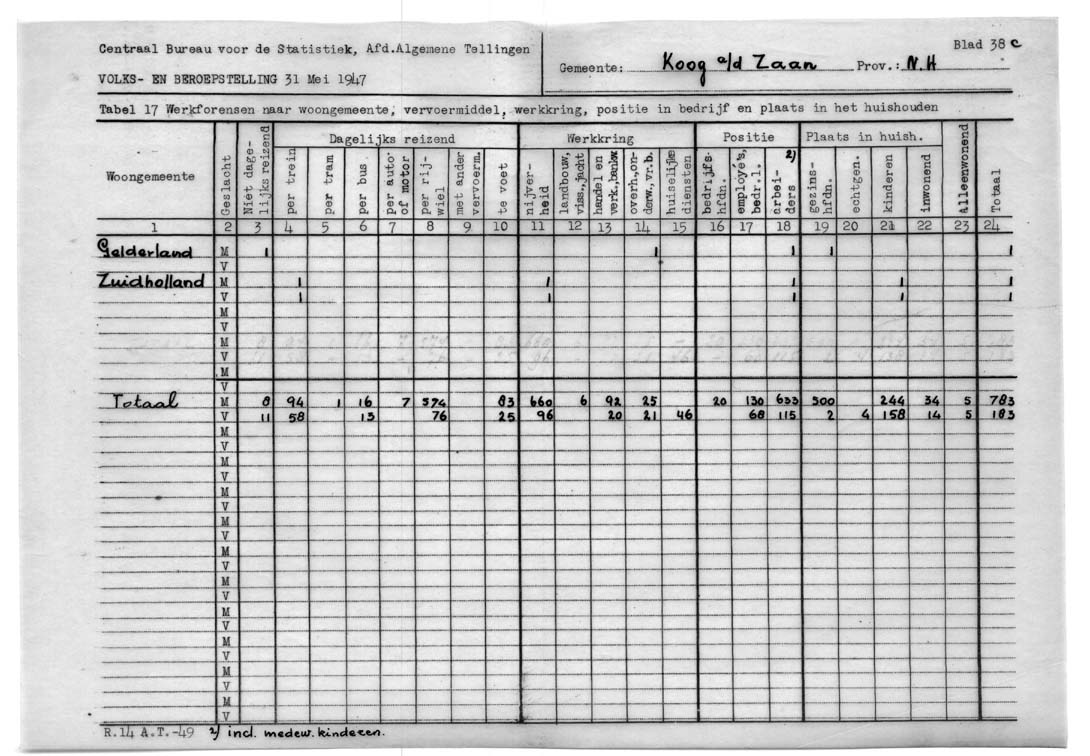 Centraal Bureau voor de Statistiek, Afd.Algemene Tellingen
VOLKS- EN BEROEPSTELLING 31 Mei 1947
Gemeente: Koog a/d Zaan Prov.: N.H
Blad 38 c
Tabel 17 Werkforensen naar woongemeente, vervoermiddel, werkkring, positie in bedrijf en plaats in het huishouden
Woongemeente
Geslacht
Niet dage-
lijks reizend
Dagelijks reizend
per trein
per tram
per bus
per auto
of motor
per rij-
wiel
met ander
vervoerm.
te voet
Werkkring
nijver-
heid
landbouw,
viss., jacht
handel en
verk., bankw
overh., on-
derw., vr.b.
huiselijke
diensten
Positie
bedrijfs-
hfdn.
employé's,
bedr.l.
arbei-
ders 2)
Plaats in huish.
gezins-
hfdn.
echtgen.
kinderen
inwonend
Alleenwonend
Totaal
1 2 3 4 5 6 7 8 9 10 11 12 13 14 15 16 17 18 19 20 21 22 23 24
Gelderland M 1 1 1 1 1
V
Zuidholland M 1 1 1 1 1
V 1 1 1 1 1
M
V
M
V
M
V
Totaal M 8 94 1 16 7 574 83 660 6 92 25 20 130 633 500 244 34 5 783
V 11 58 13 76 25 96 20 21 46 68 115 2 4 158 14 5 183
M
V
M
V
M
V
M
V
M
V
M
V
M
V
M
V
M
V
M
V
R.14 A.T.-49 2) incl. medew. kinderen.